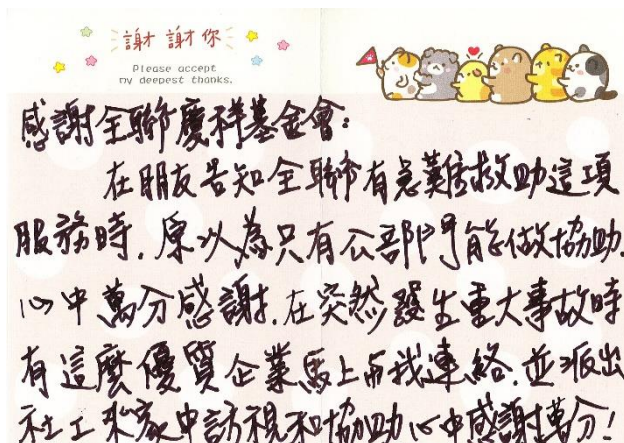 謝謝你
Please accept
my deepest thanks.
感謝全聯慶祥基金會:
在朋友告知全聯有急難救助這項
服務時,原以為只有公部門能做協助,
心中萬分感謝,在突然發生重大事故時
有這麼優質企業馬上與我連絡,並派出
社工來家中訪視和協助心中感謝萬分!